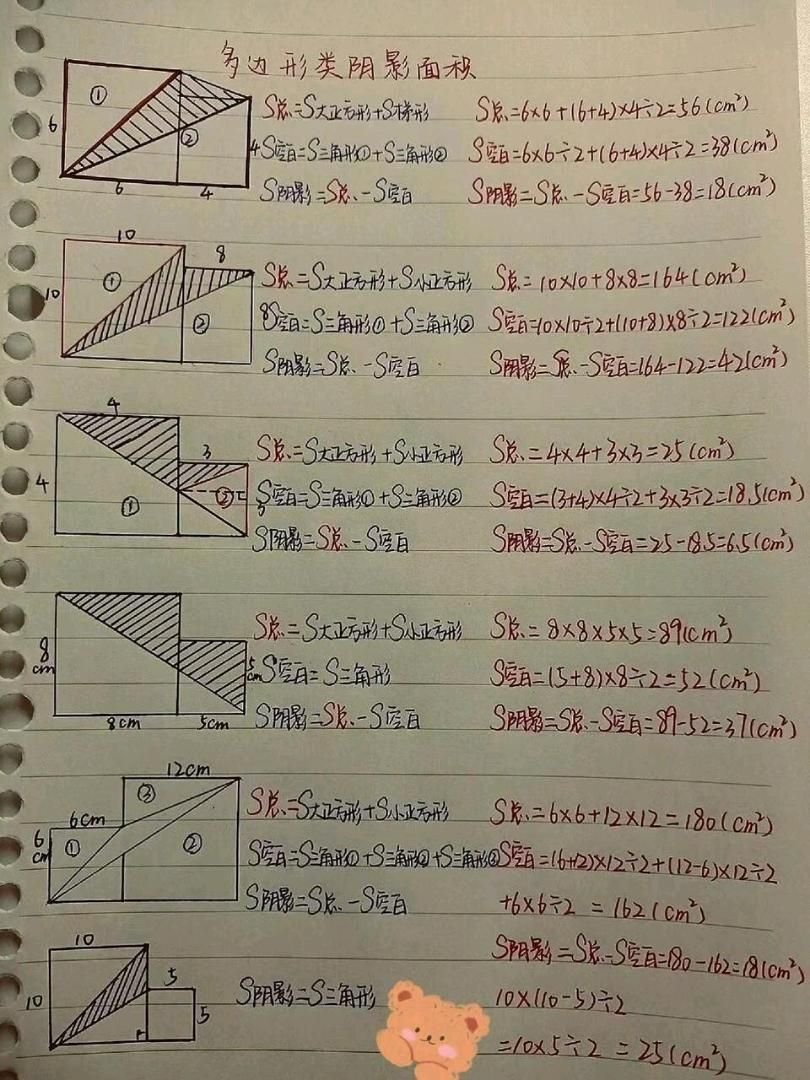 多边形类阴影面积
①
②
6
6
4
4
S总=S大正方形+S梯形 S总=6×6+(6+4)×4÷2=56(cm²)
S空白=S三角形①+S三角形② S空白=6×6÷2+(6+4)×4÷2=38(cm²)
S阴影=S总-S空白 S阴影=S总-S空白=56-38=18(cm²)
10
8
①
10
②
8
S总=S大正方形+S小正方形 S总=10×10+8×8=164(cm²)
S空白=S三角形①+S三角形② S空白=10×10÷2+(10+8)×8÷2=122(cm²)
S阴影=S总-S空白 S阴影=S总-S空白=164-122=42(cm²)
4
3
4
①
②
3
S总=S大正方形+S小正方形 S总=4×4+3×3=25(cm²)
S空白=S三角形①+S三角形② S空白=(3+4)×4÷2+3×3÷2=18.5(cm²)
S阴影=S总-S空白 S阴影=S总-S空白=25-18.5=6.5(cm²)
8
cm
5
cm
8cm
5cm
S总=S大正方形+S小正方形 S总=8×8×5×5=89(cm²)
S空白=S三角形 S空白=(5+8)×8÷2=52(cm²)
S阴影=S总-S空白 S阴影=S总-S空白=89-52=37(cm²)
12cm
③
6cm
6
cm
①
②
S总=S大正方形+S小正方形 S总=6×6+12×12=180(cm²)
S空白=S三角形①+S三角形②+S三角形③ S空白=(6+12)×12÷2+(12-6)×12÷2
S阴影=S总-S空白 +6×6÷2=162(cm²)
S阴影=S总-S空白=180-162=18(cm²)
10
10
5
5
S阴影=S三角形 10×(10-5)÷2
=10×5÷2=25(cm²)